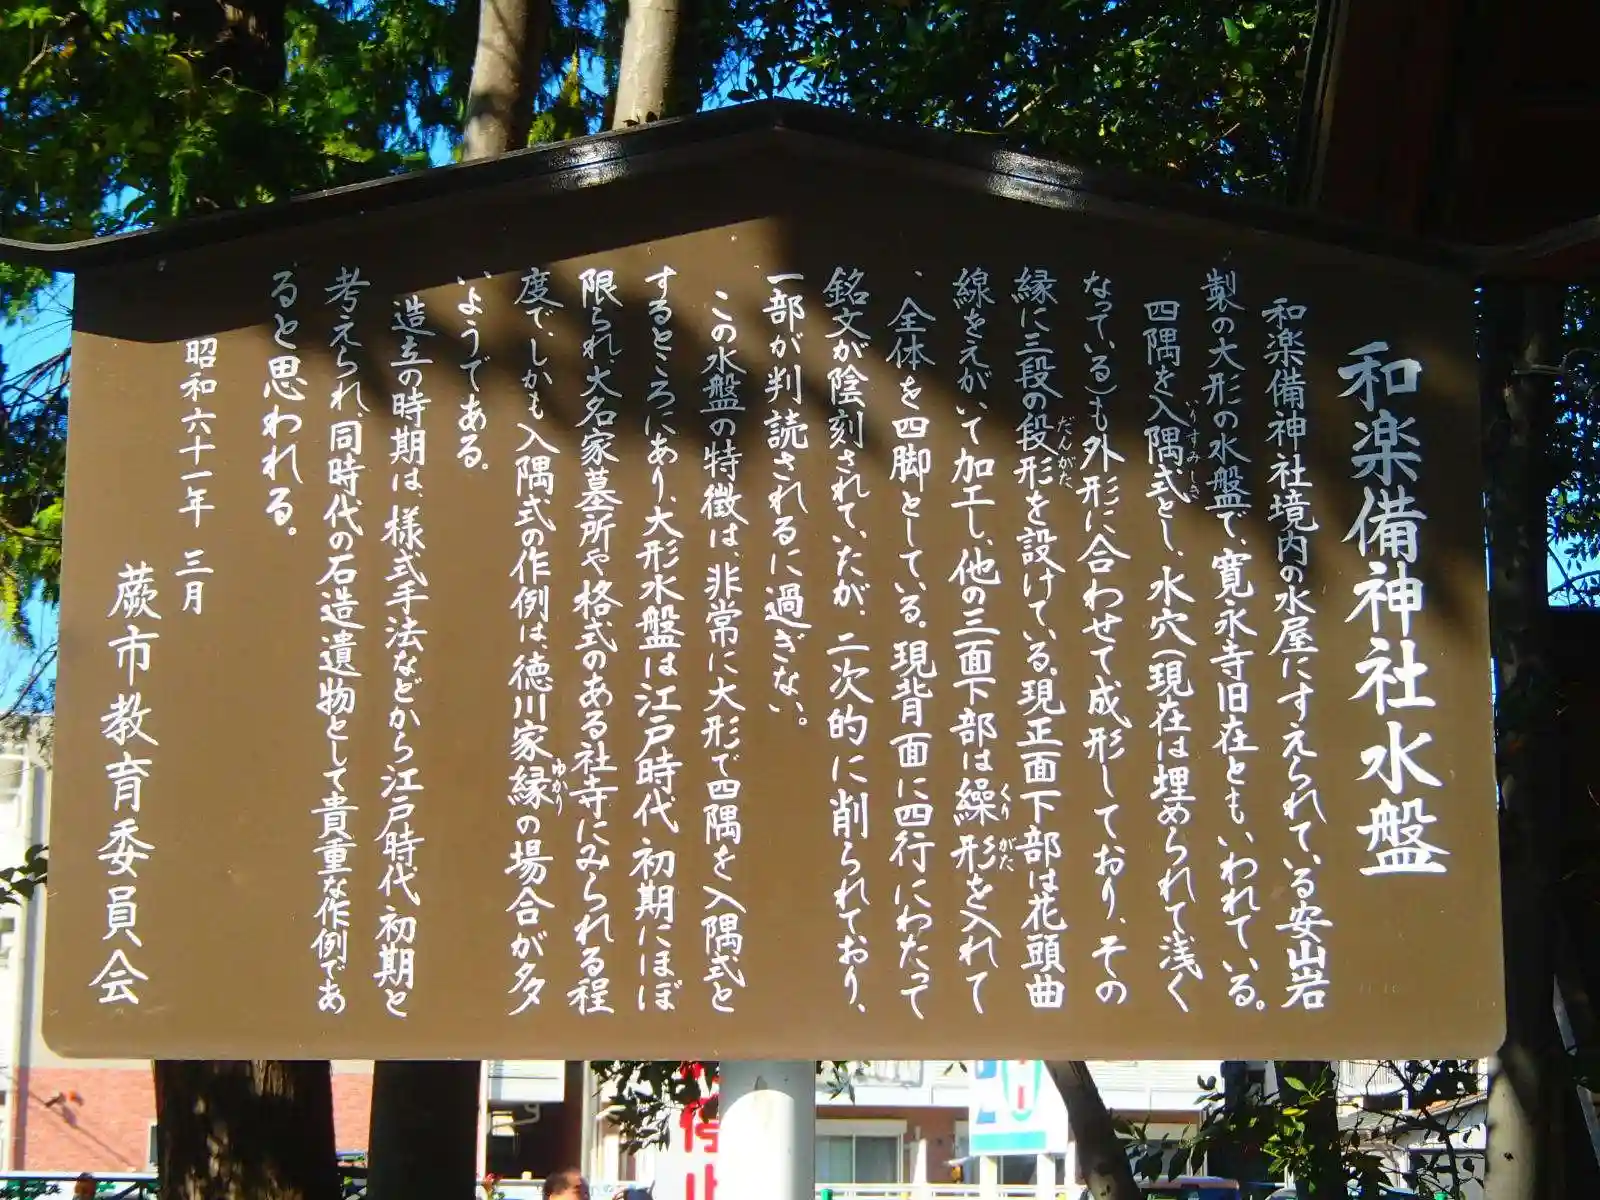 和楽備神社水盤
和楽備神社境内の水屋にすえられている安山岩
製の大形の水盤で、寛永寺旧在ともいわれている。
四隅を入隅式とし、水穴(現在は埋められて浅く
いりすみしき
なっている)も外形に合わせて成形しており、その
縁に三段の段形を設けている。現正面下部は花頭曲
だんがた
線をえがいて加工し、他の三面下部は繰形を入れて
くりがた
、全体を四脚としている。現背面に四行にわたって
銘文が陰刻されていたが、二次的に削られており、
一部が判読されるに過ぎない。
この水盤の特徴は、非常に大形で四隅を入隅式と
するところにあり、大形水盤は江戸時代初期にほぼ
限られ大名家墓所や格式のある社寺にみられる程
度で、しかも入隅式の作例は、徳川家縁の場合が多
ゆかり
いようである。
造立の時期は、様式手法などから江戸時代初期と
考えられ、同時代の石造遺物として貴重な作例であ
ると思われる。
昭和六十一年 三月
蕨市教育委員会
停止